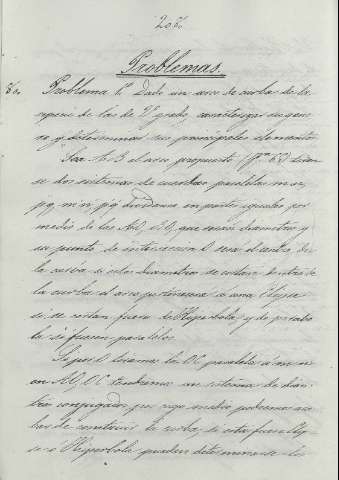 Problemas.
Problema 1º Dado un arco de curva de la
especie de las de 2º grado, caracterizar su géne-
ro y determinar sus principales elementos
Sea A B el arco propuesto tiran-
se dos sistemas de cuerdas paralelas m n,
p q, m' n' p' q' dividanse en partes iguales por
medio de las que serán diametros y
su punto de interseccion O será el centro de
la curva si estos diametros se cortan dentro de
la curva el arco pertenecerá á una Elipse
si se cortan fuera de Hiperbola, y de parabo-
la si fueren paralelos.
Si por O tiramos la OC paralela á m n
en AO, OC tendremos un sistema de diame-
tros conjugados por cuyo medio podremos aca-
bar de construir la curva, si esta fuera Elip-
se ó Hiperbola pueden determinarse los